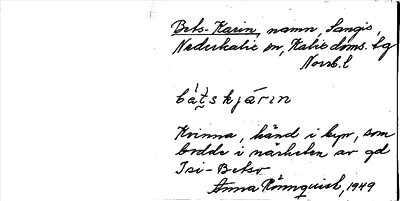 Bets-Karin, namn, Sangis,
Nederkalix sn, Kalix doms. lg
Norrb. l
bátskjárin
Kvinna, känd i byn, som
bodde i närheten av gd
Isi-Bets.
Anna Rönnquist, 1949